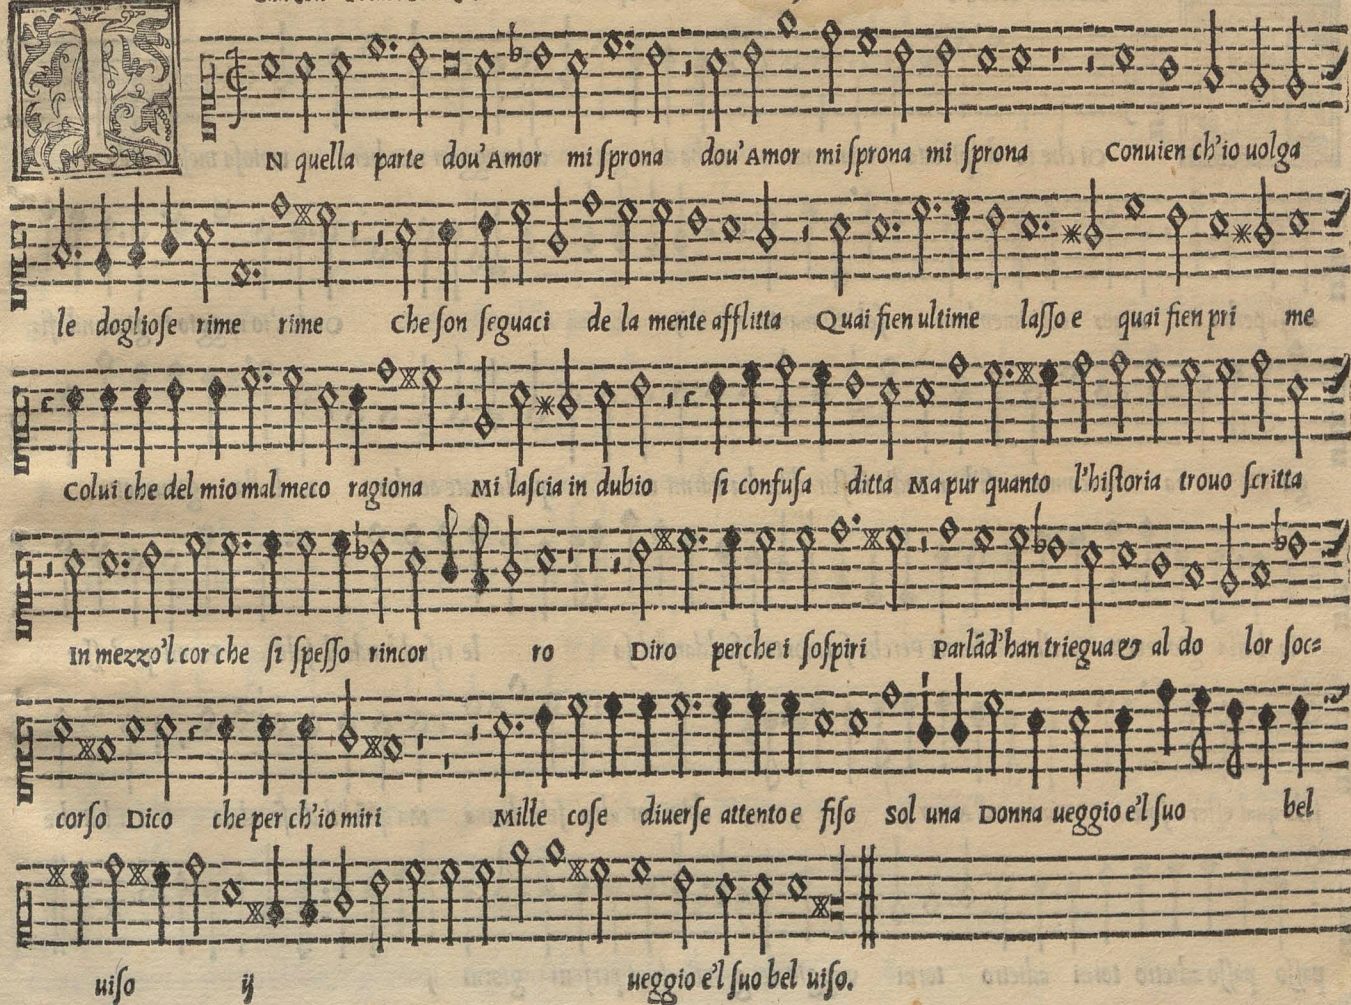 IN quella parte dou'Amor mi ſprona dou'Amor mi ſprona mi ſprona Conuien ch'io uolga
le doglioſe rime rime Che ſon ſeguaci de la mente afflitta Quai fien ultime laſſo e quai fien pri me
Colui che del mio mal meco ragiona Mi laſcia in dubio ſi confuſa ditta Ma pur quanto l'hiſtoria trouo ſcritta
In mezzo'l cor che ſi ſpeſſo rincor ro Diro perche i ſoſpiri Parlãd'han triegua & al do lor ſoc=
corſo Dico che per ch'io miri Mille coſe diuerſe attento e fiſo Sol una Donna ueggio e'l ſuo bel
uiſo ij ueggio e'l ſuo bel uiſo.